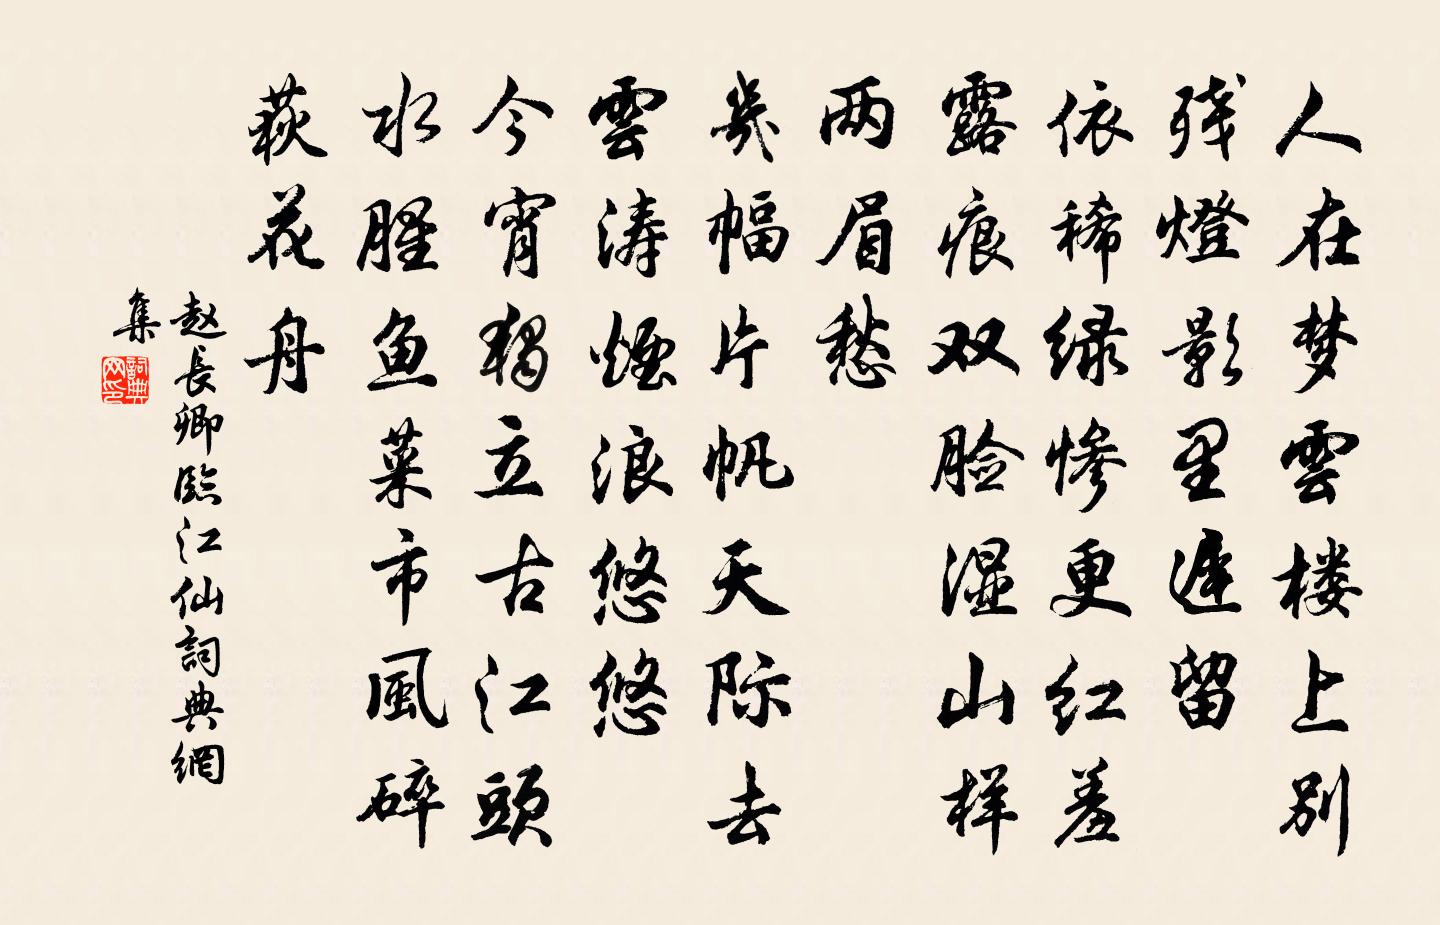 人在梦雲楼上别
残燈影里遅留
依稀绿惨更红羞
露痕双脸湿山样
两眉愁
幾幅片帆天际去
雲涛煙浪悠悠
今宵獨立古江頭
水腥鱼菜市風碎
荻花舟
赵長卿臨江仙詞典網
集
詞典
网印